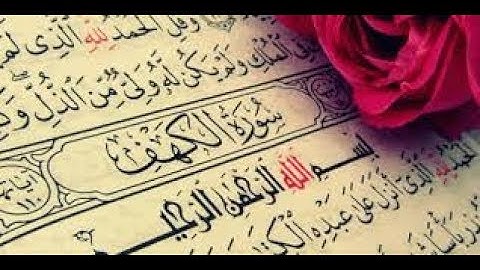 وَقُلِ الْحَمْدُ لِلَّهِ الَّذِي لَمْ
الْمُلْكِ وَلَمْ يَكُن لَّهُ وَلِيٌّ مِّنَ الذُّلِّ وَكَ
سُورَةُ الْكَهْفِ
آيَاتُهَا ١١٠
بِسْمِ اللَّهِ الرَّحْمَٰنِ الرَّحِيمِ
الْحَمْدُ لِلَّهِ الَّذِي أَنزَلَ عَلَىٰ عَبْدِهِ الْكِتَ
بَأْسًا